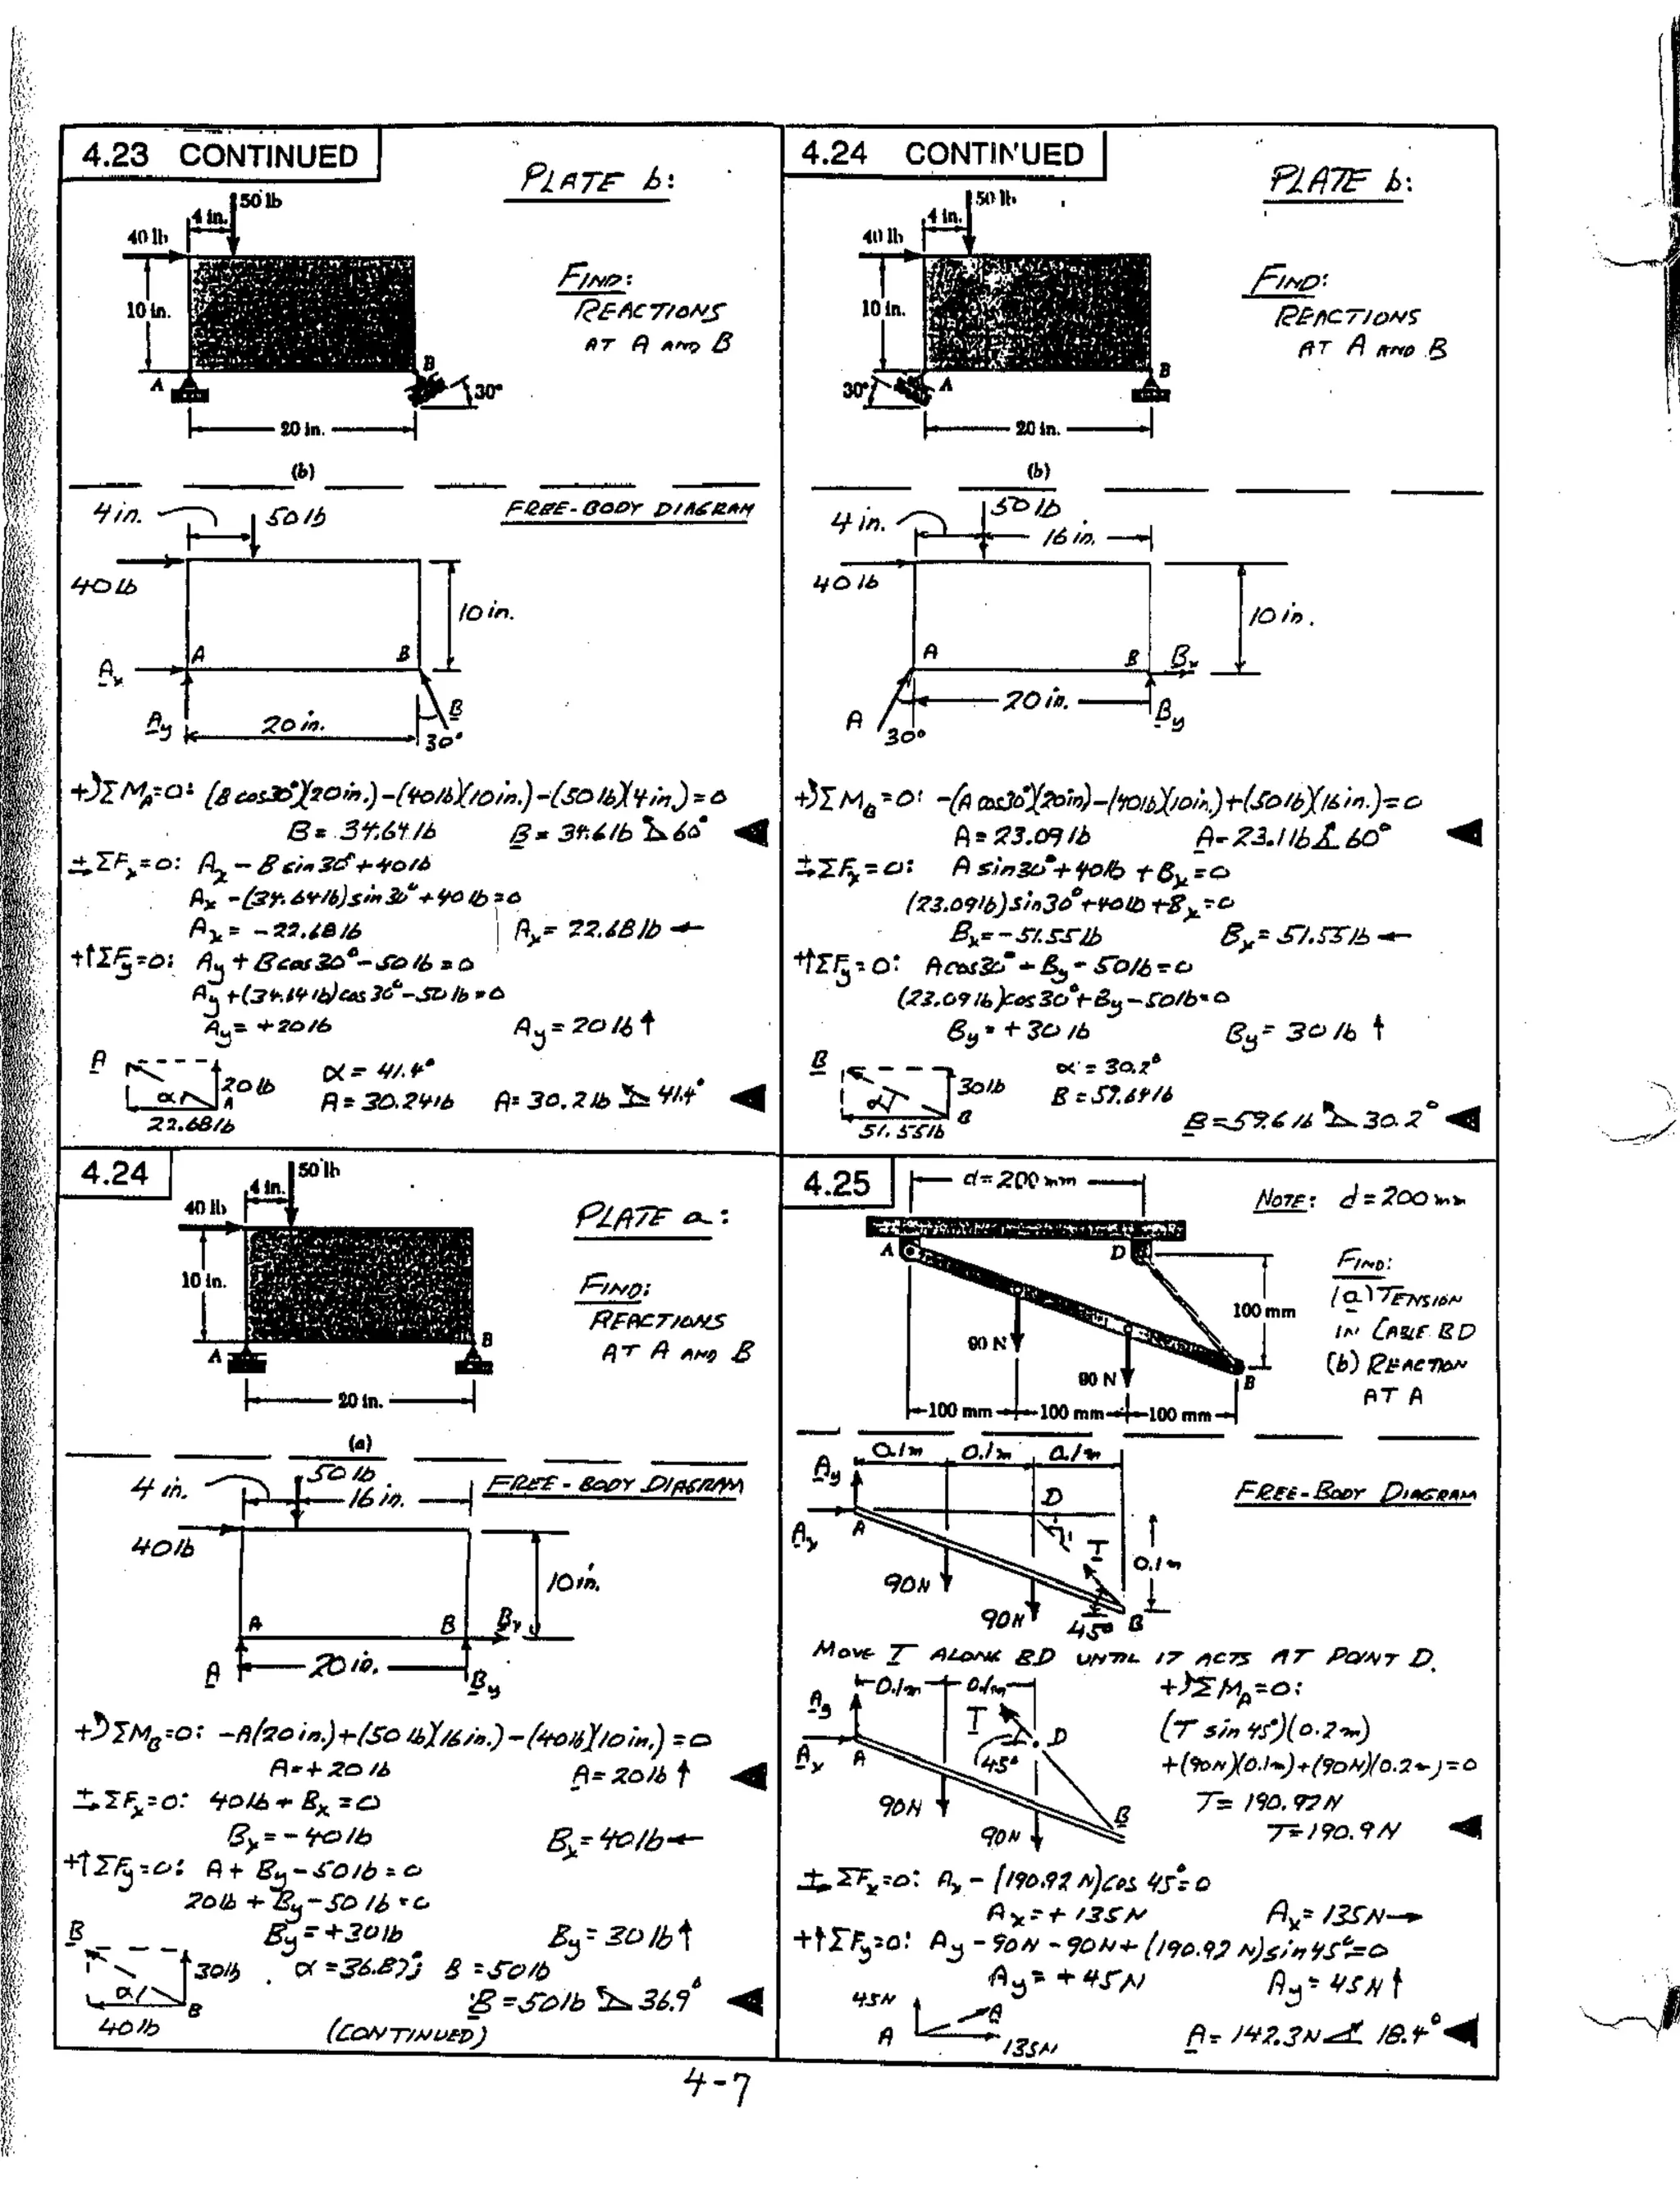 4.23 CONTINUED
PLATE b:
50 lb
4 in.
40 lb
10 in.
FIND:
REACTIONS
AT A AND B
A
B
30°
20 in.
(b)
FREE-BODY DIAGRAM
4 in.
50 lb
40 lb
10 in.
A
B
Ax
Ay
20 in.
B
30°
+↺ΣM_A=0: (B cos30°)(20in.)-(40lb)(10in.)-(50lb)(4in.)=0
B = 34.64 lb B = 34.6 lb ⦣60° ◀
±→ΣFx=0: Ax - B sin30°+40lb
Ax -(34.64lb)sin30°+40lb=0
Ax = -22.68 lb Ax = 22.68 lb ←
+↑ΣFy=0: Ay + B cos30°-50lb=0
Ay+(34.64 lb)cos30°-50 lb=0
Ay = +20 lb Ay = 20 lb ↑
A
α
20 lb
A
22.68 lb
α = 41.4°
A = 30.24 lb A = 30.2 lb ⦣ 41.4° ◀
4.24 CONTINUED
PLATE b:
50 lb
4 in.
40 lb
10 in.
FIND:
REACTIONS
AT A AND B
30°
A
B
20 in.
(b)
4 in.
50 lb
16 in.
40 lb
10 in.
A
B
Bx
20 in.
By
A
30°
+↺ΣM_B=0: -(A cos30°)(20in)-(40lb)(10in.)+(50lb)(16in.)=0
A = 23.09 lb A = 23.1 lb ∡ 60° ◀
±→ΣFx=0: A sin30°+40lb+Bx=0
(23.09lb)sin30°+40lb+Bx=0
Bx = -51.55 lb Bx = 51.55 lb ←
+↑ΣFy=0: A cos30°+By-50lb=0
(23.09 lb)cos30°+By-50lb=0
By = +30 lb By = 30 lb ↑
B
α
30 lb
B
51.55 lb
α = 30.2°
B = 59.64 lb
B = 59.6 lb ⦣ 30.2° ◀
4.24
50 lb
4 in.
40 lb
10 in.
PLATE a:
FIND:
REACTIONS
AT A AND B
A
B
20 in.
(a)
FREE-BODY DIAGRAM
4 in.
50 lb
16 in.
40 lb
10 in.
A
B
Bx
A
20 in.
By
+↺ΣM_B=0: -A(20in.)+(50lb)(16in.)-(40lb)(10in.)=0
A = +20 lb A = 20 lb ↑ ◀
±→ΣFx=0: 40lb + Bx = 0
Bx = -40 lb Bx = 40 lb ←
+↑ΣFy=0: A + By - 50lb = 0
20lb + By - 50 lb = 0
By = +30lb By = 30 lb ↑
B
α
30 lb
B
40 lb
α = 36.87°; B = 50 lb
B = 50 lb ⦣ 36.9° ◀
(CONTINUED)
4.25
d = 200 mm
NOTE: d = 200 mm
A
D
FIND:
(a) TENSION
IN CABLE BD
(b) REACTION
AT A
100 mm
90 N
90 N
B
100 mm 100 mm 100 mm
0.1m 0.1m 0.1m
FREE-BODY DIAGRAM
Ay
D
Ax
A
T
0.1m
90N
90N
45°
B
MOVE T ALONG BD UNTIL IT ACTS AT POINT D.
0.1m 0.1m
Ay
T
D
Ax
A
45°
90N
90N
B
+↺ΣM_A=0:
(T sin 45°)(0.2m)
+(90N)(0.1m)+(90N)(0.2m)=0
T = 190.92 N
T = 190.9 N ◀
±→ΣFx=0: Ax - (190.92 N)cos 45°=0
Ax = +135 N Ax = 135 N →
+↑ΣFy=0: Ay - 90N - 90N + (190.92 N)sin45°=0
Ay = +45 N Ay = 45 N ↑
45N
A
A
135N
A = 142.3 N ∡ 18.4° ◀
4-7